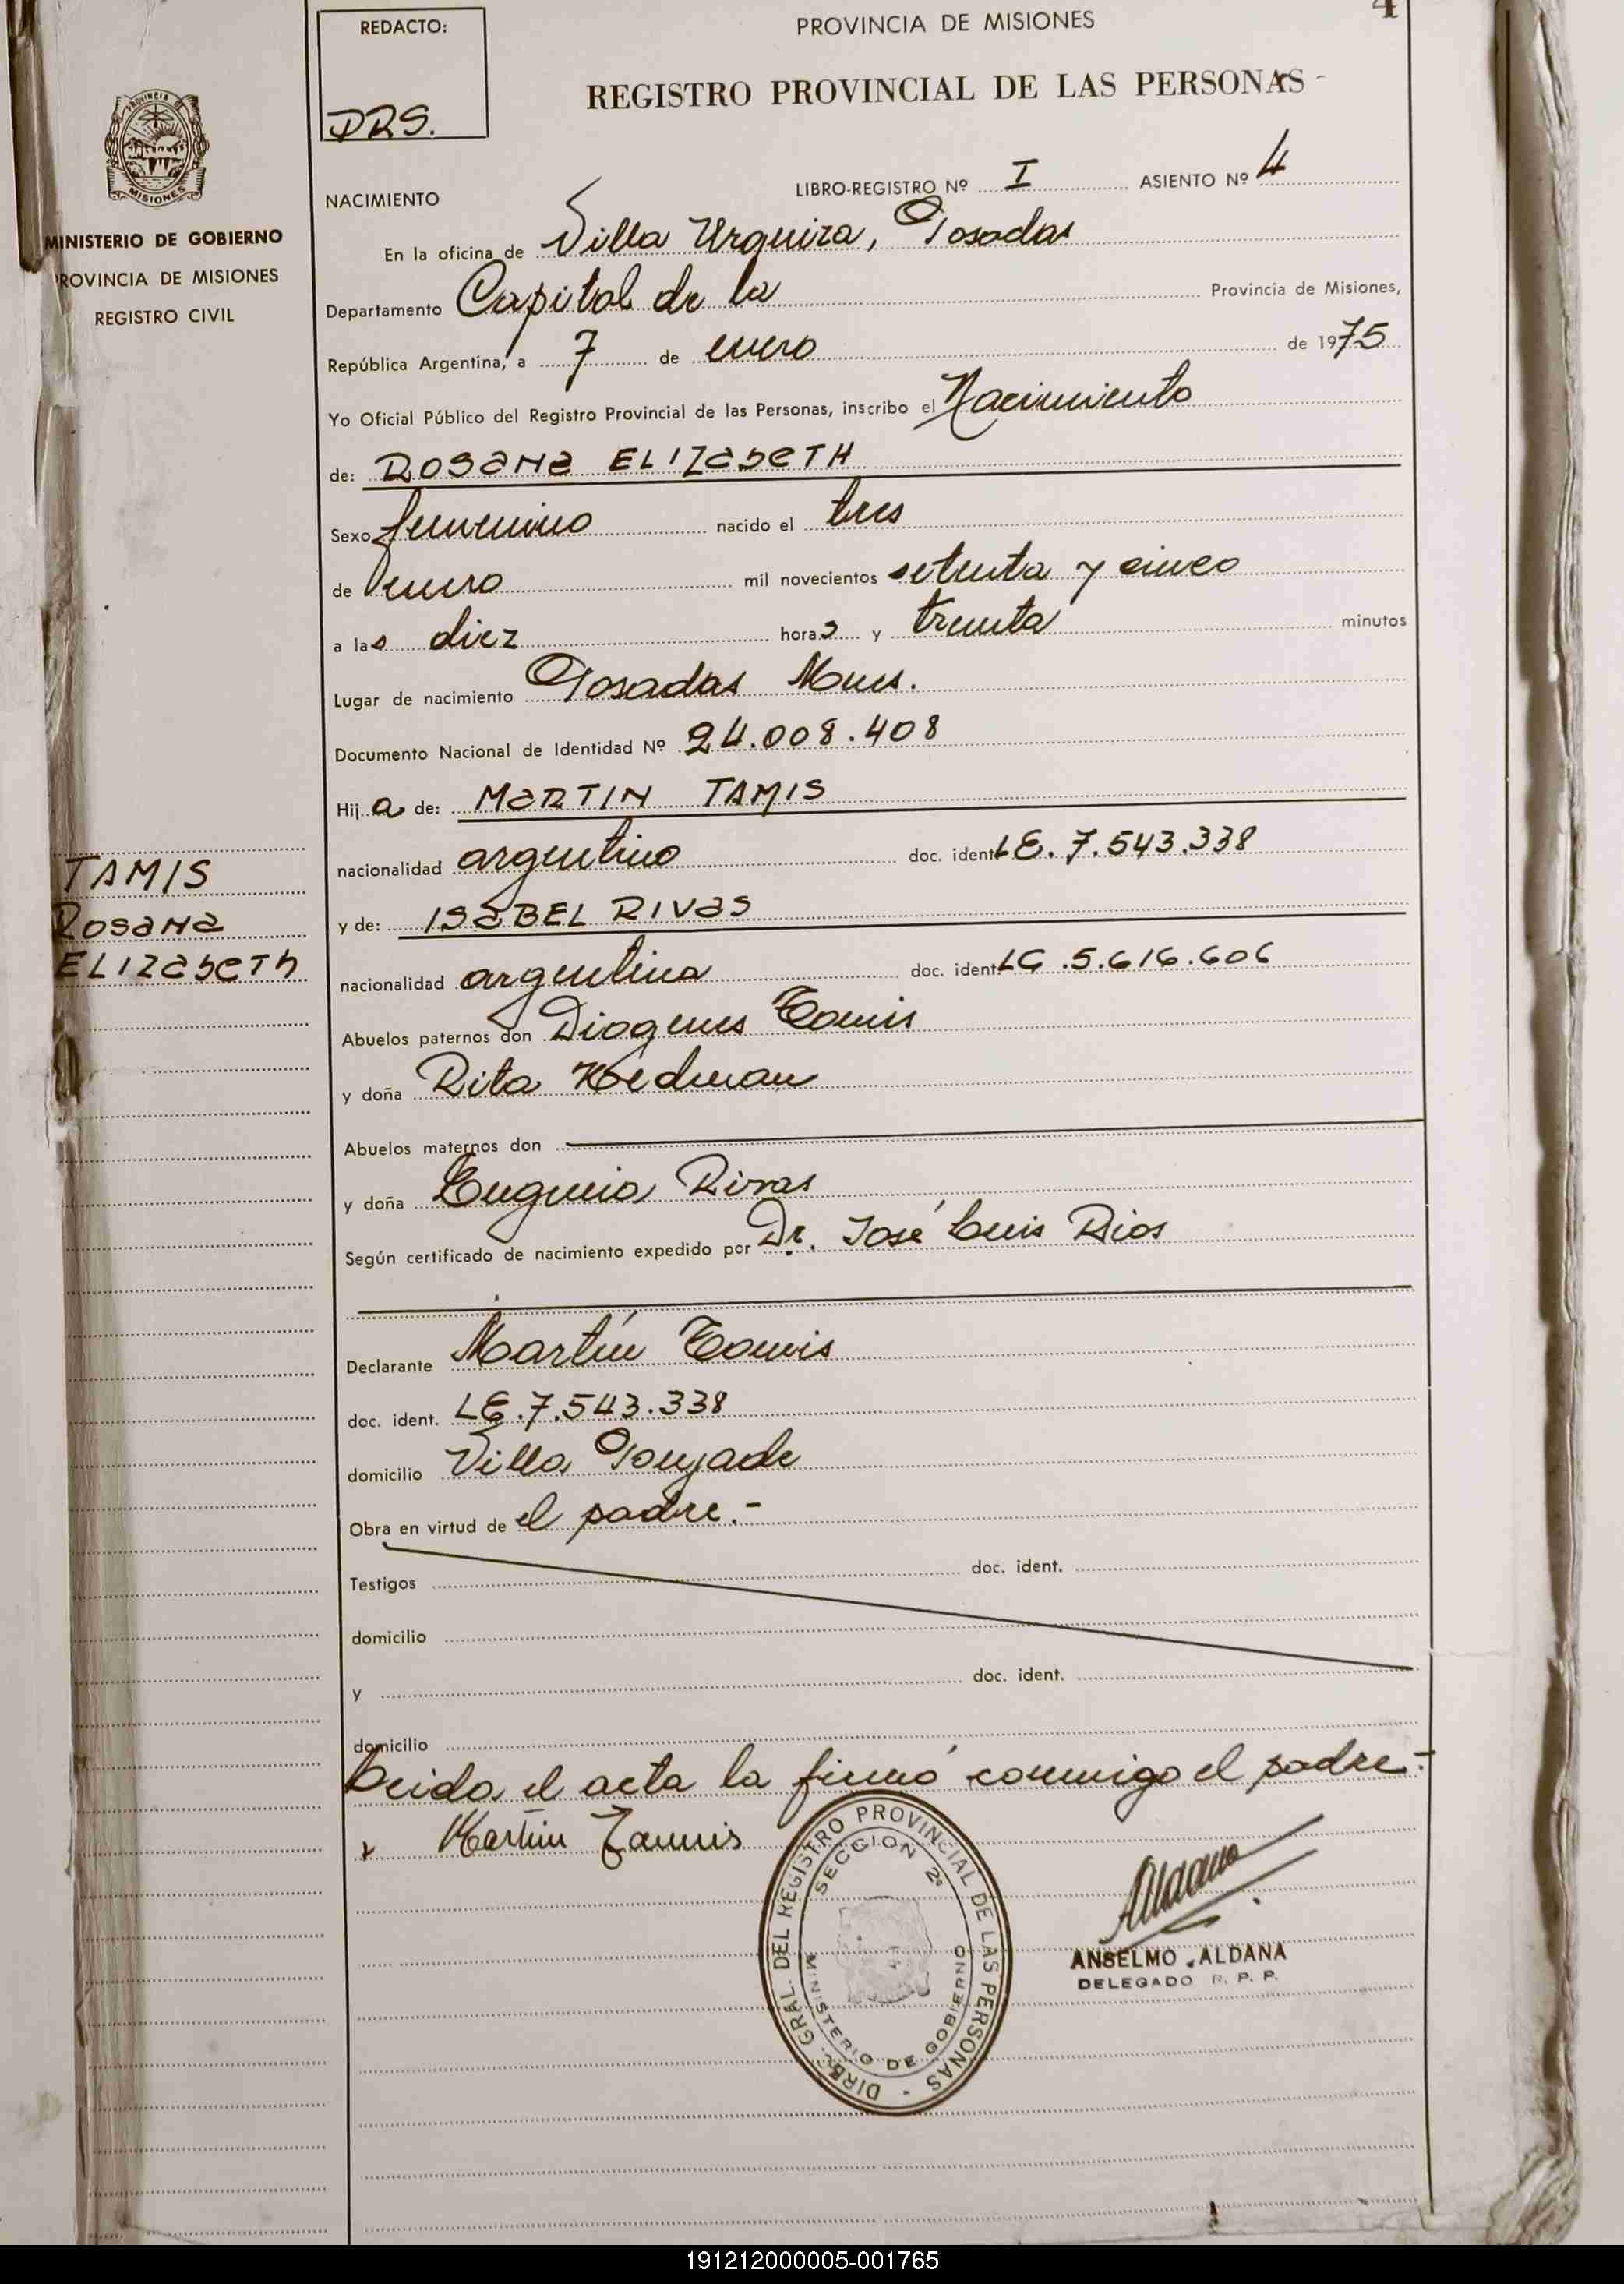 4
REDACTO:
DRS.
PROVINCIA DE MISIONES
REGISTRO PROVINCIAL DE LAS PERSONAS
PROVINCIA
MISIONES
MINISTERIO DE GOBIERNO
PROVINCIA DE MISIONES
REGISTRO CIVIL
NACIMIENTO
LIBRO-REGISTRO Nº I ASIENTO Nº 4
En la oficina de Villa Urquiza, Posadas
Departamento Capital de la Provincia de Misiones,
República Argentina, a 7 de enero de 1975
Yo Oficial Público del Registro Provincial de las Personas, inscribo el Nacimiento
de: ROSANA ELIZABETH
Sexo femenino nacido el tres
de enero mil novecientos setenta y cinco
a las diez horas y treinta minutos
Lugar de nacimiento Posadas Mnes.
Documento Nacional de Identidad Nº 24.008.408
Hija de: MARTIN TAMIS
nacionalidad argentino doc. ident LE. 7.543.338
y de: ISABEL RIVAS
nacionalidad argentina doc. ident LC .5.616.606
Abuelos paternos don Diogenes Tamis
y doña Rita
Abuelos maternos don
y doña Eugenia Rivas
Según certificado de nacimiento expedido por Dr. José Luis Rios
TAMIS
ROSANA
ELIZABETH
Declarante Martín Tamis
doc. ident. LE.7.543.338
domicilio Villa
Obra en virtud de el padre.-
Testigos doc. ident.
domicilio
y doc. ident.
domicilio
Leida el acta la firmó conmigo el padre.-
x Martin Tamis
DIREC. GRAL. DEL REGISTRO PROVINCIAL DE LAS PERSONAS -
SECCION 2º
MINISTERIO DE GOBIERNO
Aldana
ANSELMO ALDANA
DELEGADO R. P. P.
191212000005-001765